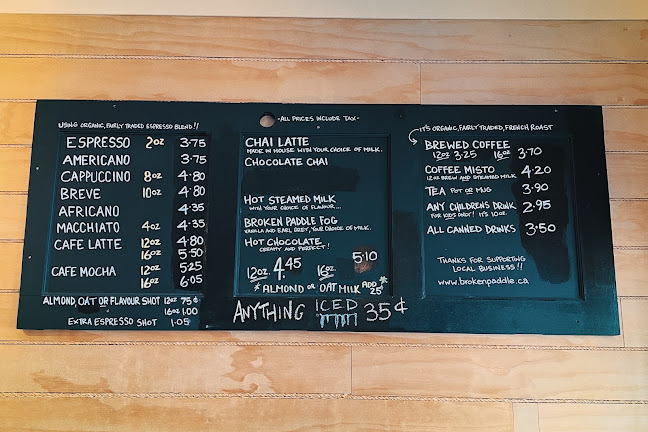 USING ORGANIC, FAIRLY TRADED ESPRESSO BLEND!!
ESPRESSO 2oz 3.75
AMERICANO 3.75
CAPPUCCINO 8oz 4.80
BREVE 10oz 4.80
AFRICANO 4.35
MACCHIATO 4oz 4.35
CAFE LATTE 12oz 4.80
16oz 5.50
CAFE MOCHA 12oz 5.25
16oz 6.05
ALMOND, OAT OR FLAVOUR SHOT 12oz 75¢
16oz 1.00
EXTRA ESPRESSO SHOT 1.05
-ALL PRICES INCLUDE TAX-
CHAI LATTE
MADE IN HOUSE WITH YOUR CHOICE OF MILK.
CHOCOLATE CHAI
HOT STEAMED MILK
WITH YOUR CHOICE OF FLAVOUR...
BROKEN PADDLE FOG
VANILLA AND EARL GREY, YOUR CHOICE OF MILK.
HOT CHOCOLATE
CREAMY AND PERFECT!
12oz 4.45 16oz 5.10
*ALMOND OR OAT MILK ADD 25¢*
ANYTHING ICED 35¢
IT'S ORGANIC, FAIRLY TRADED, FRENCH ROAST
BREWED COFFEE
12oz 3.25 16oz 3.70
COFFEE MISTO 4.20
12oz BREW AND STEAMED MILK
TEA POT OR MUG 3.90
ANY CHILDRENS DRINK 2.95
FOR KIDS ONLY! IT'S 10oz.
ALL CANNED DRINKS 3.50
THANKS FOR SUPPORTING
LOCAL BUSINESS!!
www.brokenpaddle.ca